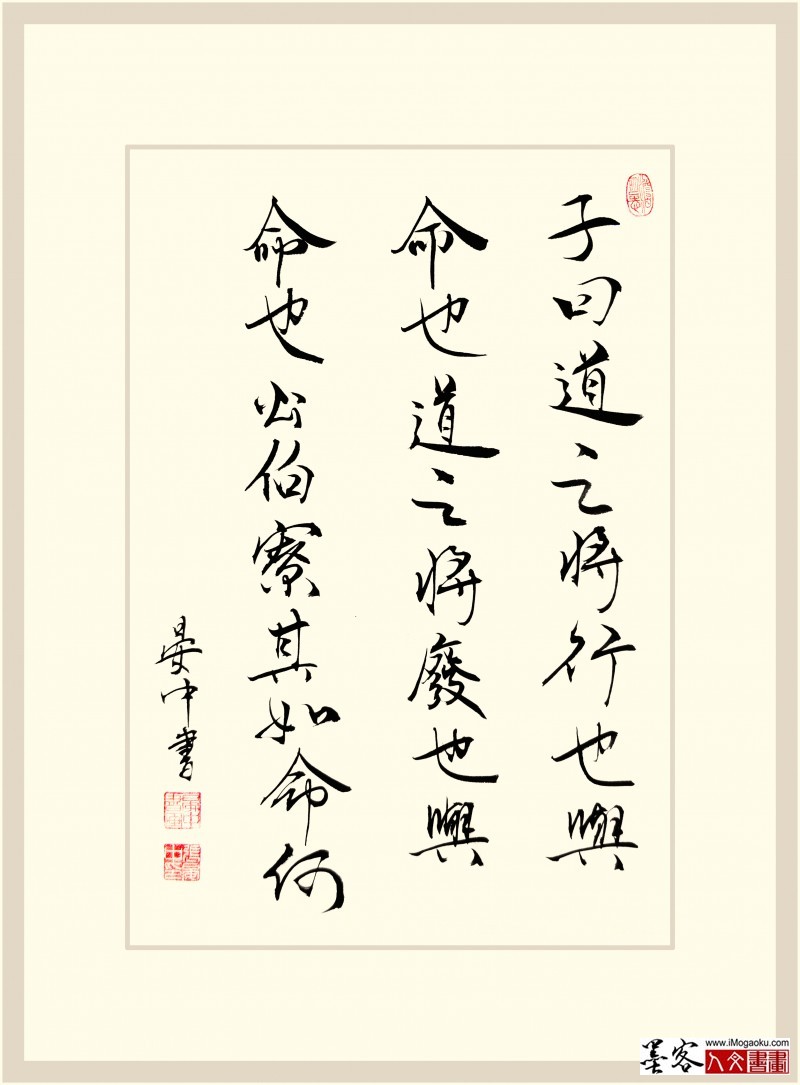 子曰道之將行也與
命也道之將廢也與
命也公伯寮其如命何
晏中書
墨客
www.iMogaoku.com
人文書畫